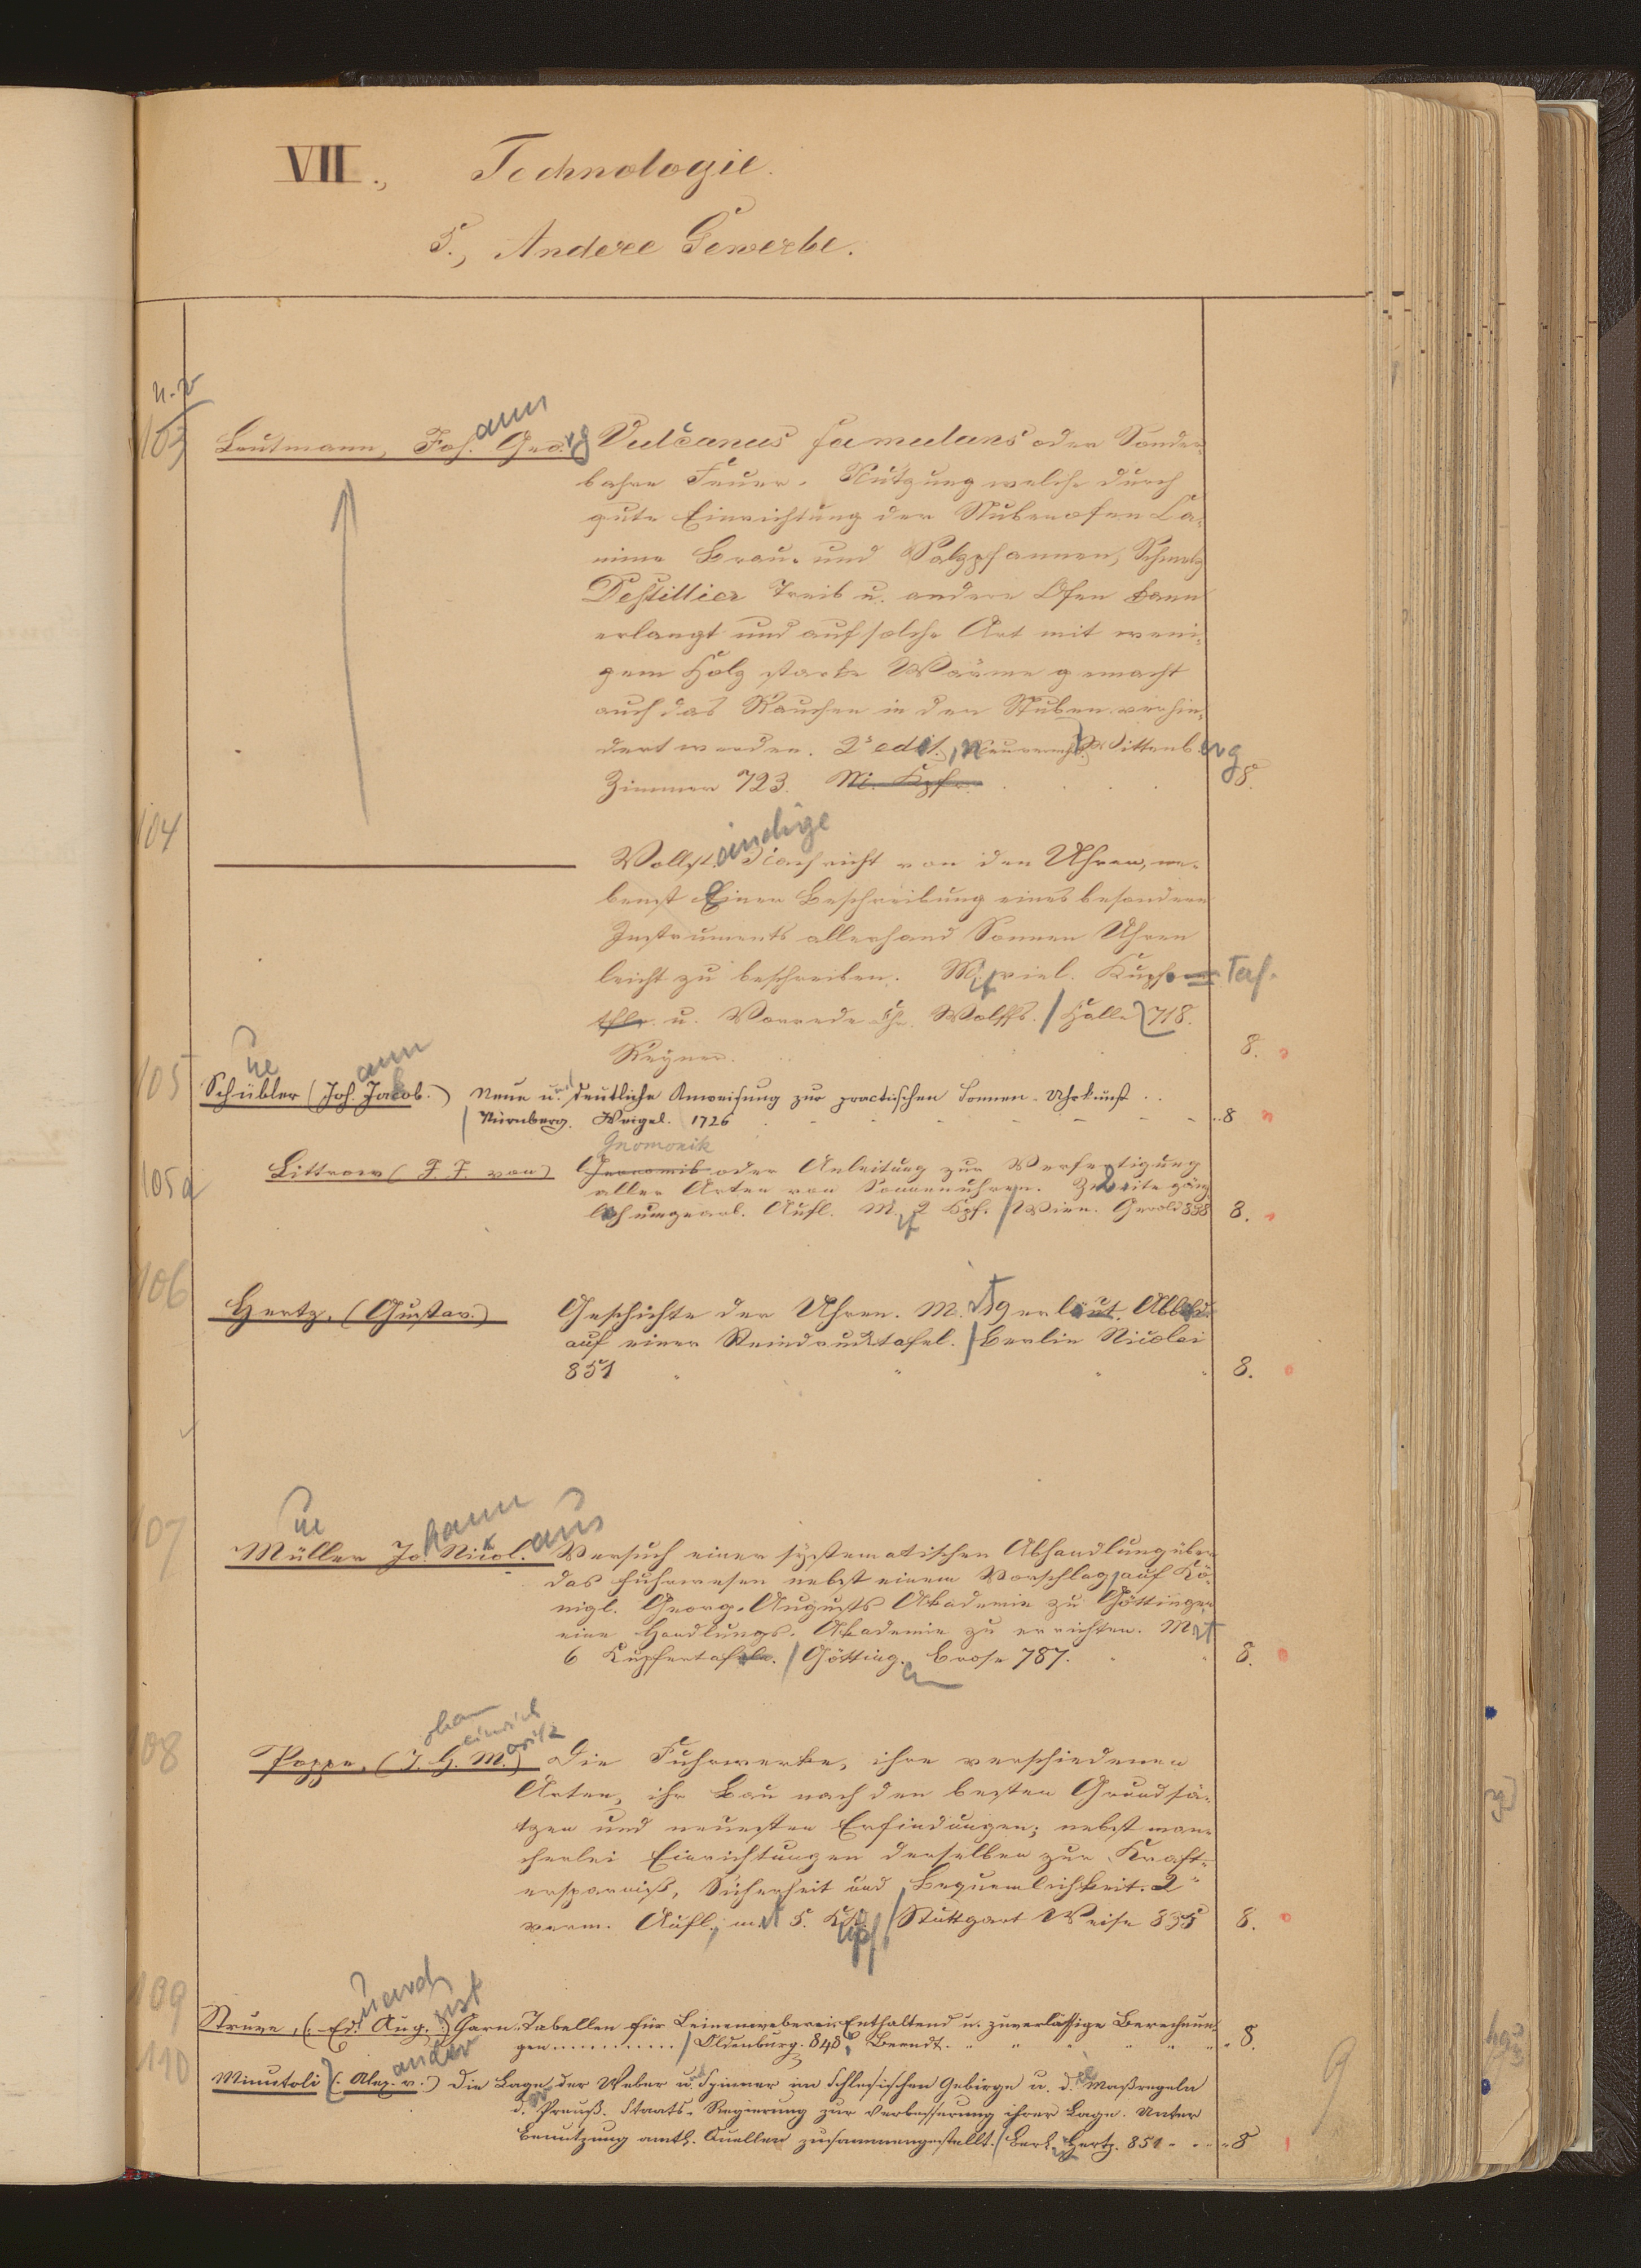 VII., Technologie.
5., Andere Gewerbe.
n. v
103 Leutmann, Joh.ann Georg Vulcanus famulans oder Sonder-
bahre Feuer-Nützung welche durch
gute Einrichtung der Stubenofen Ca-
mine Brau- und Salzpfannen, Schmelz
Destillier Treib u. andere Ofen kann
erlangt und auf solche Art mit weni-
gem Holz starke Wärme gemacht
auch das Rauchen in den Stuben verhin-
dert werden. 2s edit., Wittenberg
Zimmer 723. M. Kpfr. 8.
104 Vollständige Nachricht von den Uhren, ne-
benst Einer Beschreibung eines besondern
Instruments allerhand Sonnen Uhren
leicht zu beschreiben. Mit viel. Kupf. Taf.
tfln. u. Vorrede Chr. Wolffs. / Halle 718.
Reyner. 8.
105 Schübler (Joh.ann Jacob.) Neue und deutliche Anweisung zur practischen Sonnen-Uhrkunst ..
/ Nürnberg. Weigel. 1726 8
Gnomonik
105a Littrow (J. J. von) oder Anleitung zur Verfertigung
aller Arten von Sonnenuhren. Zweite gänz-
lich umgearb. Aufl. Mit 2 Kpf. / Wien. Gerold 838 8.
106 Hertz, (Gustav.) Geschichte der Uhren. Mit 19 erläut. Abbild.
auf einer Steindrucktafel. / Berlin Nicolai
851 8.
107 Müller Johann Nikolaus Versuch einer systematischen Abhandlung über
das Fuhrwesen nebst einem Vorschlag, auf Kö-
nigl. Georg-Augusts Akademie zu Göttingen
eine Handlungs-Akademie zu errichten. Mit
6 Kupfertafeln. / Götting.en Brose 787. 8.
108 Poppe, (Johann Heinrich Moritz) Die Fuhrwerke, ihre verschiedenen
Arten, ihr Bau nach den besten Grundsä-
tzen und neuesten Erfindungen; nebst man-
cherlei Einrichtungen derselben zur Kraft-
ersparniß, Sicherheit und Bequemlichkeit. 2e
verm. Aufl., mit 5. Kupf. / Stuttgart Weise 835 8.
109 Struve, (Eduard August) Garn-Tabellen für Leinenweberei. Enthaltend u. zuverlässige Berechnun-
gen .......... / Oldenburg. 848. Berndt. 8.
110 Minutoli (Alexander v.) Die Lage der Weber und Spinner im Schlesischen Gebirge u. die Maßregeln
der Preuß. Staats-Regierung zur Verbesserung ihrer Lage. Unter
Benutzung amtl. Quellen zusammengestellt. / Berl. Hertz. 851 8
9